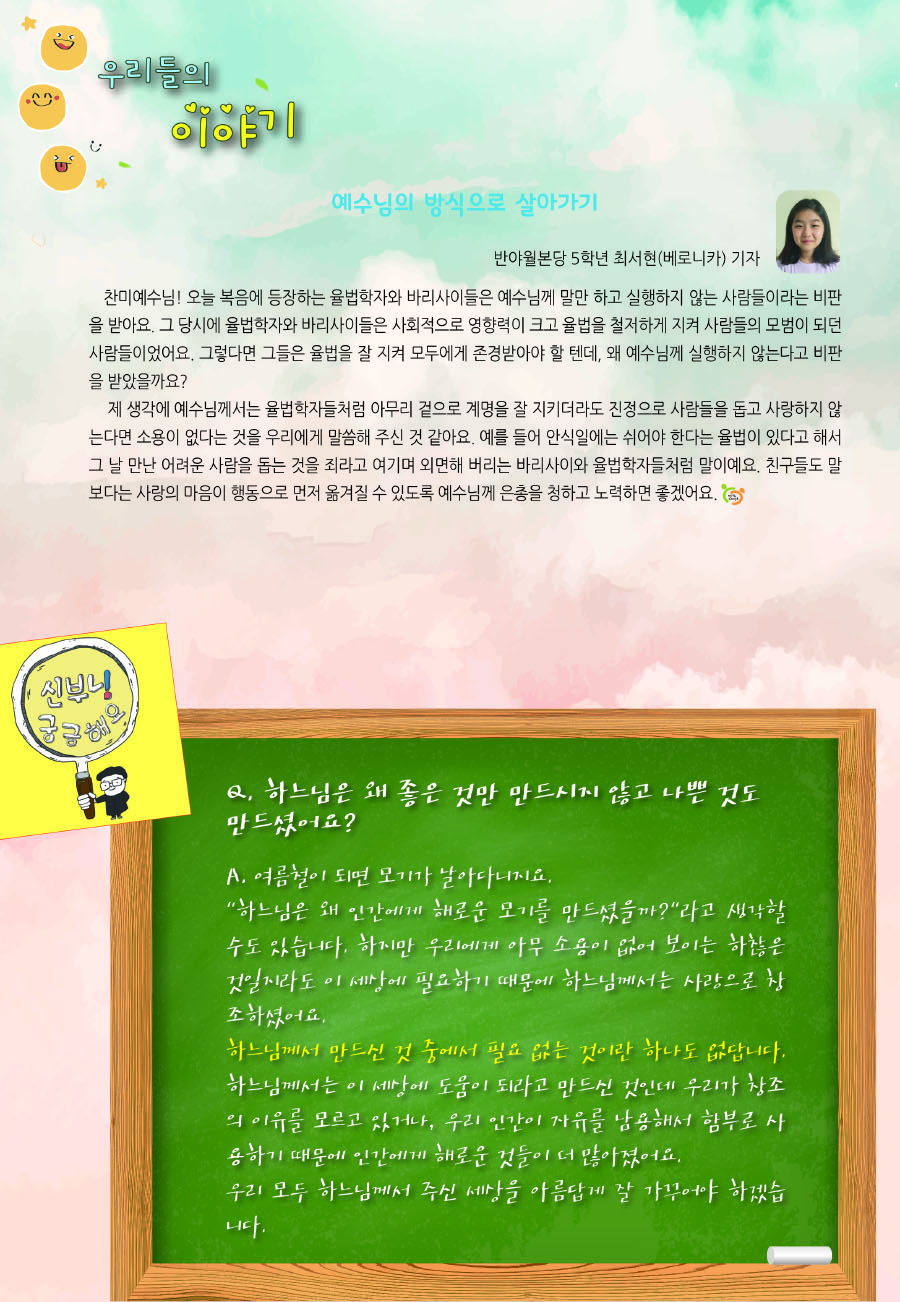 우리들의
이야기
예수님의 방식으로 살아가기
반야월본당 5학년 최서현(베로니카) 기자
찬미예수님! 오늘 복음에 등장하는 율법학자와 바리사이들은 예수님께 말만 하고 실행하지 않는 사람들이라는 비판
을 받아요. 그 당시에 율법학자와 바리사이들은 사회적으로 영향력이 크고 율법을 철저하게 지켜 사람들의 모범이 되던
사람들이었어요. 그렇다면 그들은 율법을 잘 지켜 모두에게 존경받아야 할 텐데, 왜 예수님께 실행하지 않는다고 비판
을 받았을까요?
제 생각에 예수님께서는 율법학자들처럼 아무리 겉으로 계명을 잘 지키더라도 진정으로 사람들을 돕고 사랑하지 않
는다면 소용이 없다는 것을 우리에게 말씀해 주신 것 같아요. 예를 들어 안식일에는 쉬어야 한다는 율법이 있다고 해서
그 날 만난 어려운 사람을 돕는 것을 죄라고 여기며 외면해 버리는 바리사이와 율법학자들처럼 말이예요. 친구들도 말
보다는 사랑의 마음이 행동으로 먼저 옮겨질 수 있도록 예수님께 은총을 청하고 노력하면 좋겠어요.
신부님
궁금해요
Q. 하느님은 왜 좋은 것만 만드시지 않고 나쁜 것도
만드셨어요?
A. 여름철이 되면 모기가 날아다니지요.
"하느님은 왜 인간에게 해로운 모기를 만드셨을까?"라고 생각할
수도 있습니다. 하지만 우리에게 아무 소용이 없어 보이는 하찮은
것일지라도 이 세상에 필요하기 때문에 하느님께서는 사랑으로 창
조하셨어요.
하느님께서 만드신 것 중에서 필요 없는 것이란 하나도 없답니다.
하느님께서는 이 세상에 도움이 되라고 만드신 것인데 우리가 창조
의 이유를 모르고 있거나, 우리 인간이 자유를 남용해서 함부로 사
용하기 때문에 인간에게 해로운 것들이 더 많아졌어요.
우리 모두 하느님께서 주신 세상을 아름답게 잘 가꾸어야 하겠습
니다.